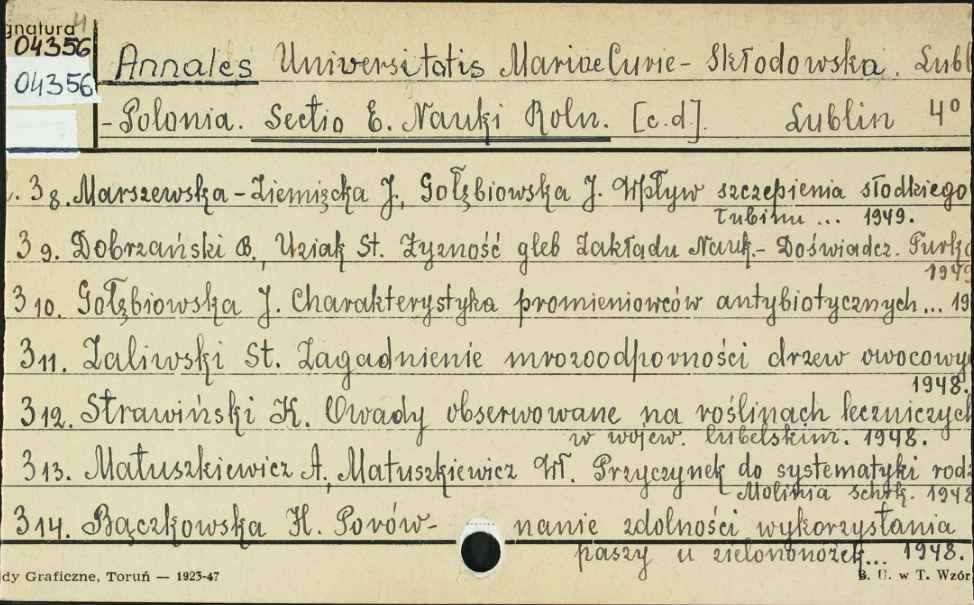 gnatura 4
04356
04356
Annales Universitatis Mariae Curie - Skłodowska. Lubl
- Polonia. Sectio E. Nauki Roln. [c.d.]. Lublin 4°
. 3 8. Marszewska - Ziemięcka J., Gołębiowska J. Wpływ szczepienia słodkiego
łubinu ... 1949.
3 9. Dobrzański B., Uziak St. Żyzność gleb Zakładu Nauk.- Doświadcz.
3 10. Gołębiowska J. Charakterystyka promieniowców antybiotycznych... 19
3 11. Zaliwski St. Zagadnienie mrozoodporności drzew owocowy
1948.
3 12. Strawiński K. Owady obserwowane na roślinach leczniczych
w wojew. lubelskim. 1948.
3 13. Matuszkiewicz A., Matuszkiewicz W. Przyczynek do systematyki rodz
Molinia Schrk. 1948
3 14. Bączkowska H. Porów- nanie zdolności wykorzystania
paszy u zielononóżek... 1948.
dy Graficzne, Toruń — 1923-47
B. U. w T. Wzór